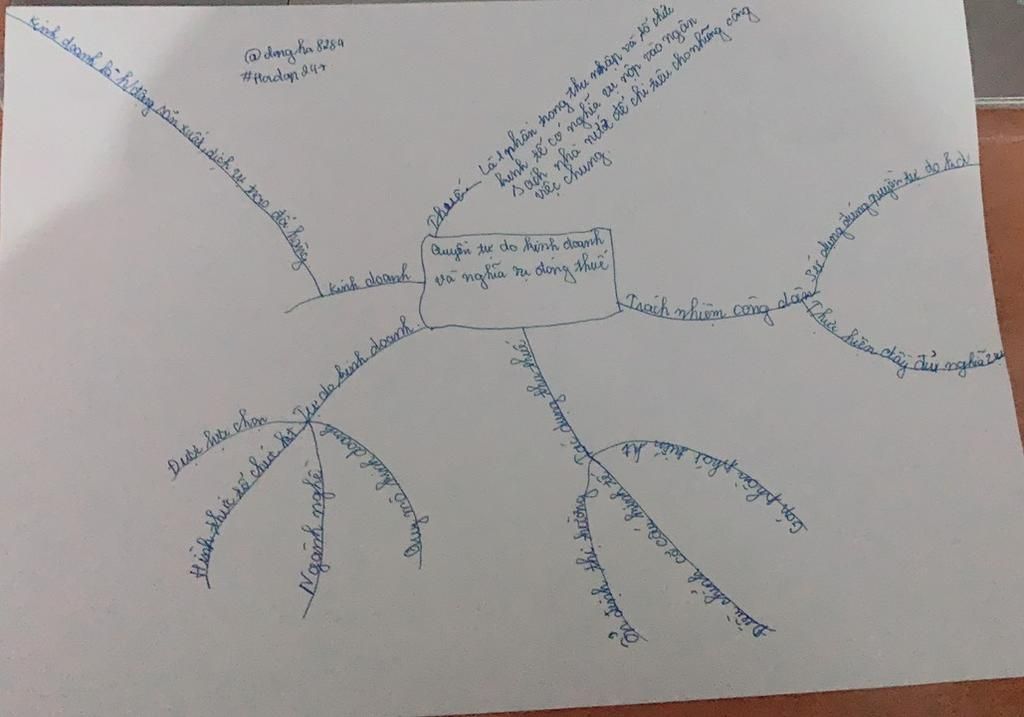 Kinh doanh là h/động sản xuất, dịch vụ trao đổi hàng
@dongha8284
#Hoidap247
Thuế
Là 1 phần trong thu nhập và tổ chức
kinh tế có nghĩa vụ nộp vào ngân
sách nhà nước để chi tiêu cho những công
việc chung.
Quyền tự do kinh doanh
và nghĩa vụ đóng thuế
Kinh doanh
Trách nhiệm công dân
Sử dụng đúng quyền tự do kd
Thực hiện đầy đủ nghĩa vụ
Tự do kinh doanh
Được lựa chọn
Hình thức tổ chức kt
Ngành nghề
Quy mô kinh doanh
Tác dụng thu thuế
Ổn định thị trường
Điều chỉnh cơ cấu kinh tế
Góp phần phát triển kt